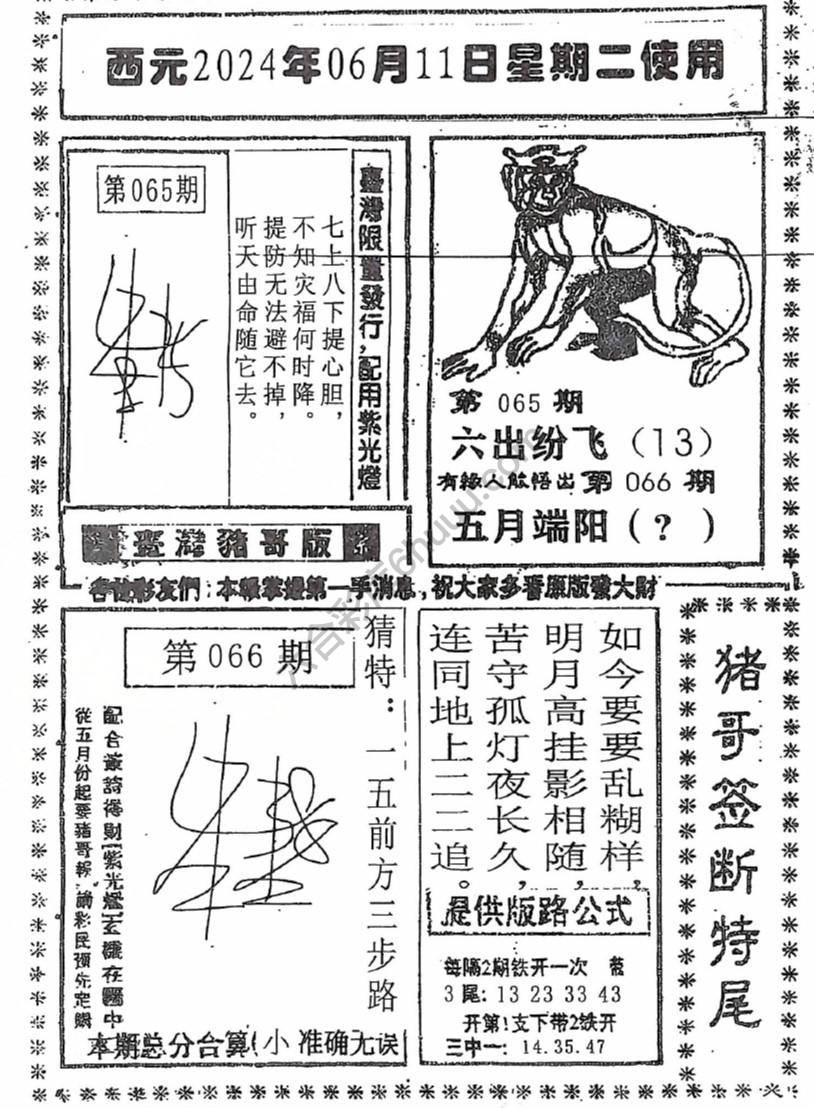 西元2024年06月11日星期二使用
第065期
臺灣限量發行，配用紫光燈
七上八下提心胆，
不知灾福何时降。
提防无法避不掉，
听天由命随它去。
臺灣豬哥版
第 065 期
六出纷飞（13）
有緣人能悟出 第 066 期
五月端阳（？）
各種彩友們：本報掌握第一手消息，祝大家多看原版發大財
第 066 期
猜特：一五前方三步路
配合簽詩得財(紫光燈)玄機在圖中
從五月份起要豬哥報 請彩民預先定購
本期总分合算(小 准确无误
如今要要乱糊样，
明月高挂影相随，
苦守孤灯夜长久，
连同地上二二追。
提供版路公式
每隔2期铁开一次 带
3尾: 13 23 33 43
开第1支下带2铁开
三中一: 14.35.47
猪哥签断特尾
六合彩库6huuu.com